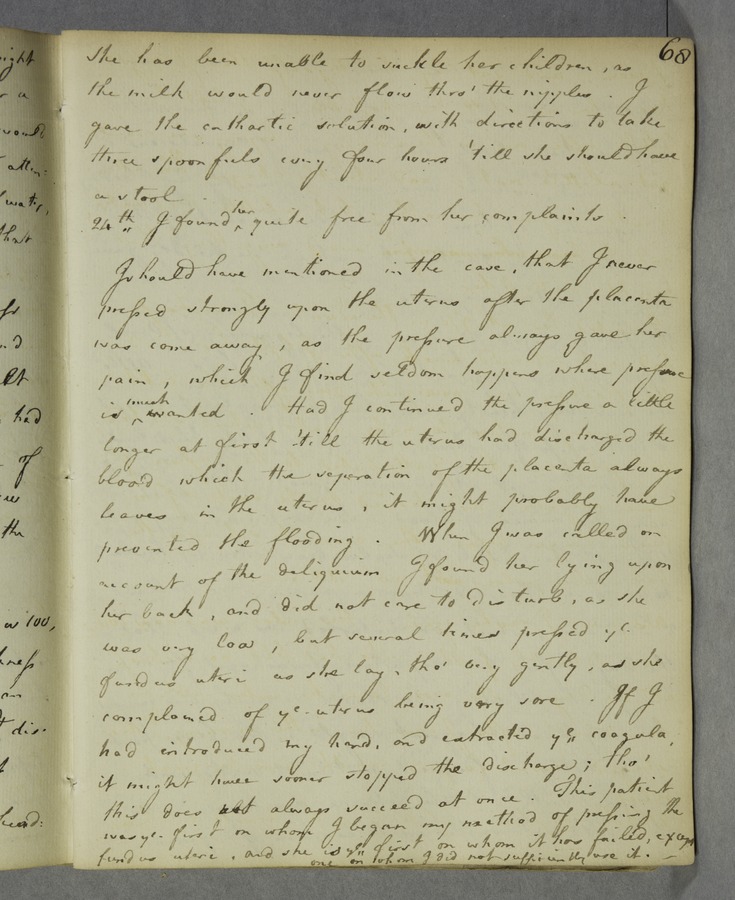 ight
r a
would
atten:
water,
that
nd
had
of
the
w 100,
ness
dis:
68
she has been unable to suckle her children, as
the milk would never flow thro' the nipples. I
gave the cathartic solution, with directions to take
three spoonfuls every four hours 'till she should have
a stool.
24th I found her quite free from her complaints.
I should have mentioned in the case, that I never
pressed strongly upon the uterus after the placenta
was come away, as the pressure always gave her
pain, which I find seldom happens where pressure
is much wanted. Had I continued the pressure a little
longer at first 'till the uterus had discharged the
blood which the separation of the placenta always
leaves in the uterus, it might probably have
prevented the flooding. When I was called on
account of the deliquium I found her lying upon
her back, and did not care to disturb, as she
was very low, but several times pressed ye.
fundus uteri as she lay, tho' very gently, as she
complained of ye. uterus being very sore. If I
had introduced my hand, and extracted ye coagula,
it might have sooner stopped the discharge; tho'
this does not always succeed at once. This patient
was ye. first on whom I began my method of pressing the
fundus uteri, and she is ye first on whom it has failed, except
one on whom I did not sufficiently use it.